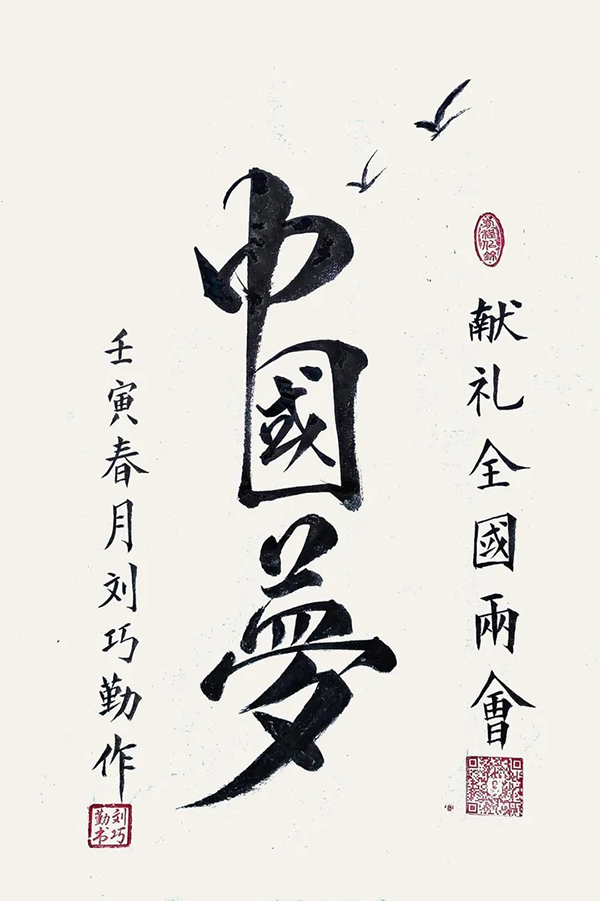 献礼全國兩會
中國夢
壬寅春月刘巧勤作
刘巧
勤书